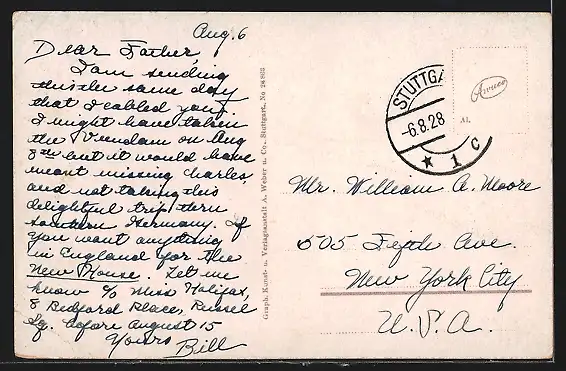 Aug. 6
Dear Father,
I am sending
this the same day
that I cabled you.
I might have taken
the Veendam on Aug
8th but it would have
meant missing Charles,
and not taking this
delightful trip thru
southern Germany. If
you want anything
in England for the
New House. Let me
know c/o Miss Halifax,
8 Bedford Place, Russel
Sq. before August 15
Yours
Bill
Graph. Kunst- u. Verlagsanstalt A. Weber u. Co., Stuttgart, No 24803
STUTTGA
-6.8.28
* 1 c
Al.
Mr. William A. Moore
505 Fifth Ave.
New York City
U.S.A.